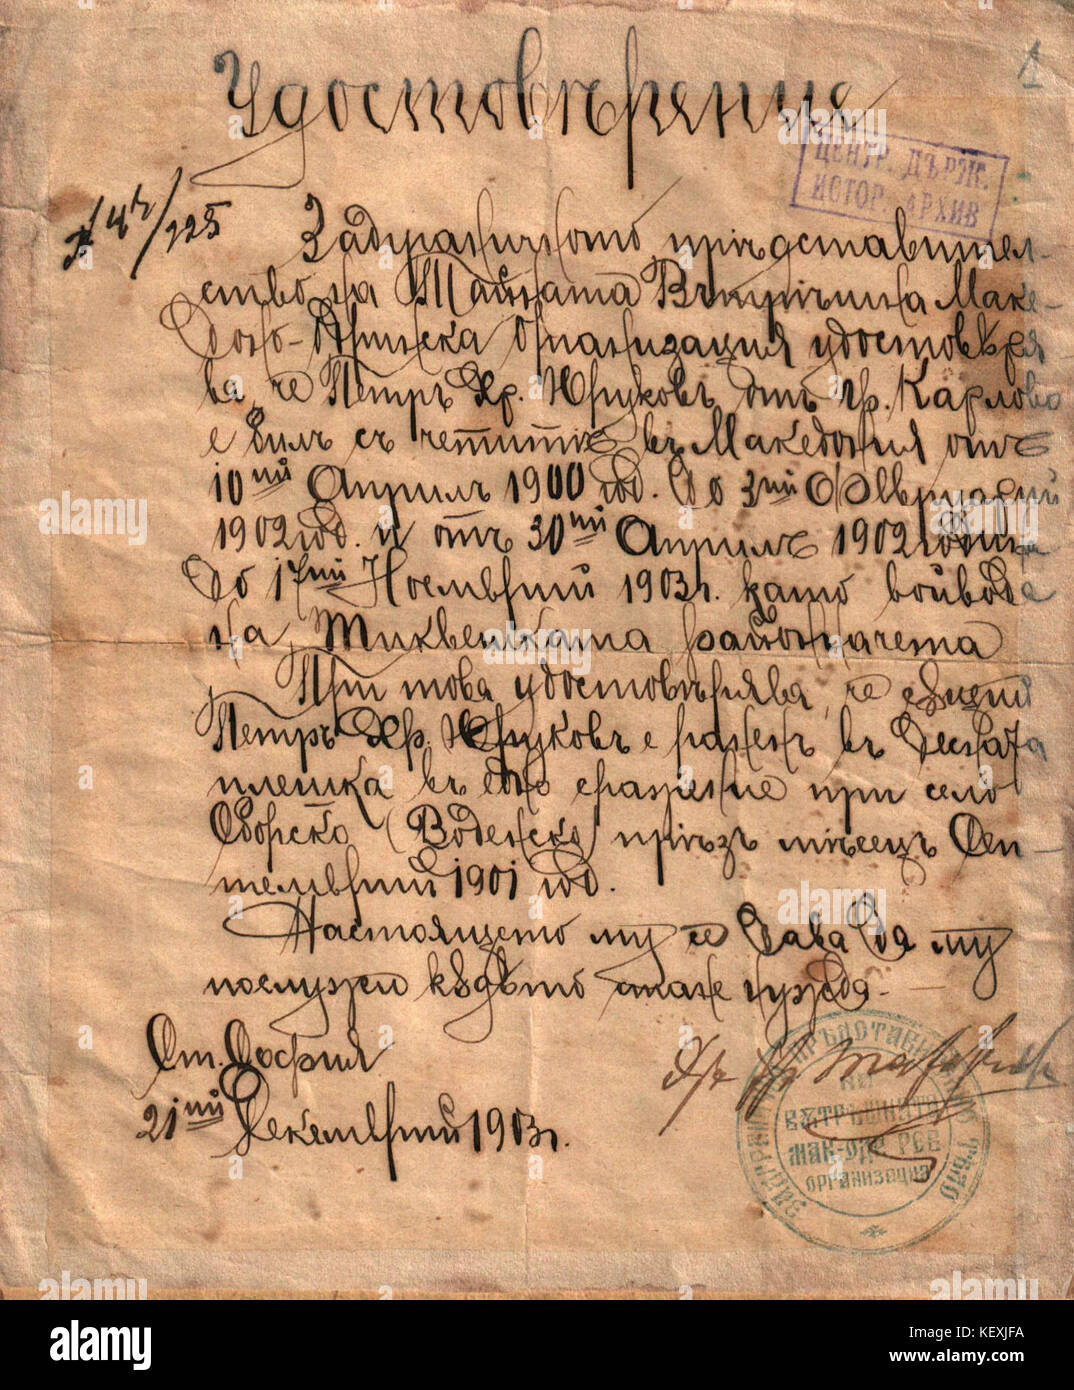 Удостовѣрение
1
ЦЕНТР. ДЪРЖ.
ИСТОР. АРХИВ
225
Задграничното прѣдставител-
ство на Тайната Вѫтрѣшна Маке-
доно-Одринска Организация удостовѣря-
ва, че Петръ Хр. Юруковъ отъ гр. Карлово
е билъ съ четитѣ въ Македония отъ
10ий Априлъ 1900 год. до 3ий Февруарий
1902 год. и отъ 30ий Априлъ 1902 година
до 17ий Ноемврий 1903 г. като войвода
на Тиквешката район. чета
При това удостовѣрява, че сѫщий
Петръ Хр. Юруковъ е раненъ въ дѣсната
плешка въ едно сражение при село
Оборско (Воденско) прѣзъ мѣсецъ Сеп-
темврий 1901 год.
Настоящето му се дава да му
послужи кѫдѣто стане нужда.
От. София
21ий Декемврий 1903 г.
Др. Хр. Татарчевъ
ЗАДГРАНИЧНО ПРѢДСТАВИТЕЛНО ТѢЛО
НА
ВѪТРѢШНАТА
МАК-ОДР. РЕВ.
ОРГАНИЗАЦИЯ
alamy
alamy stock photo
KEXJFA
www.alamy.com